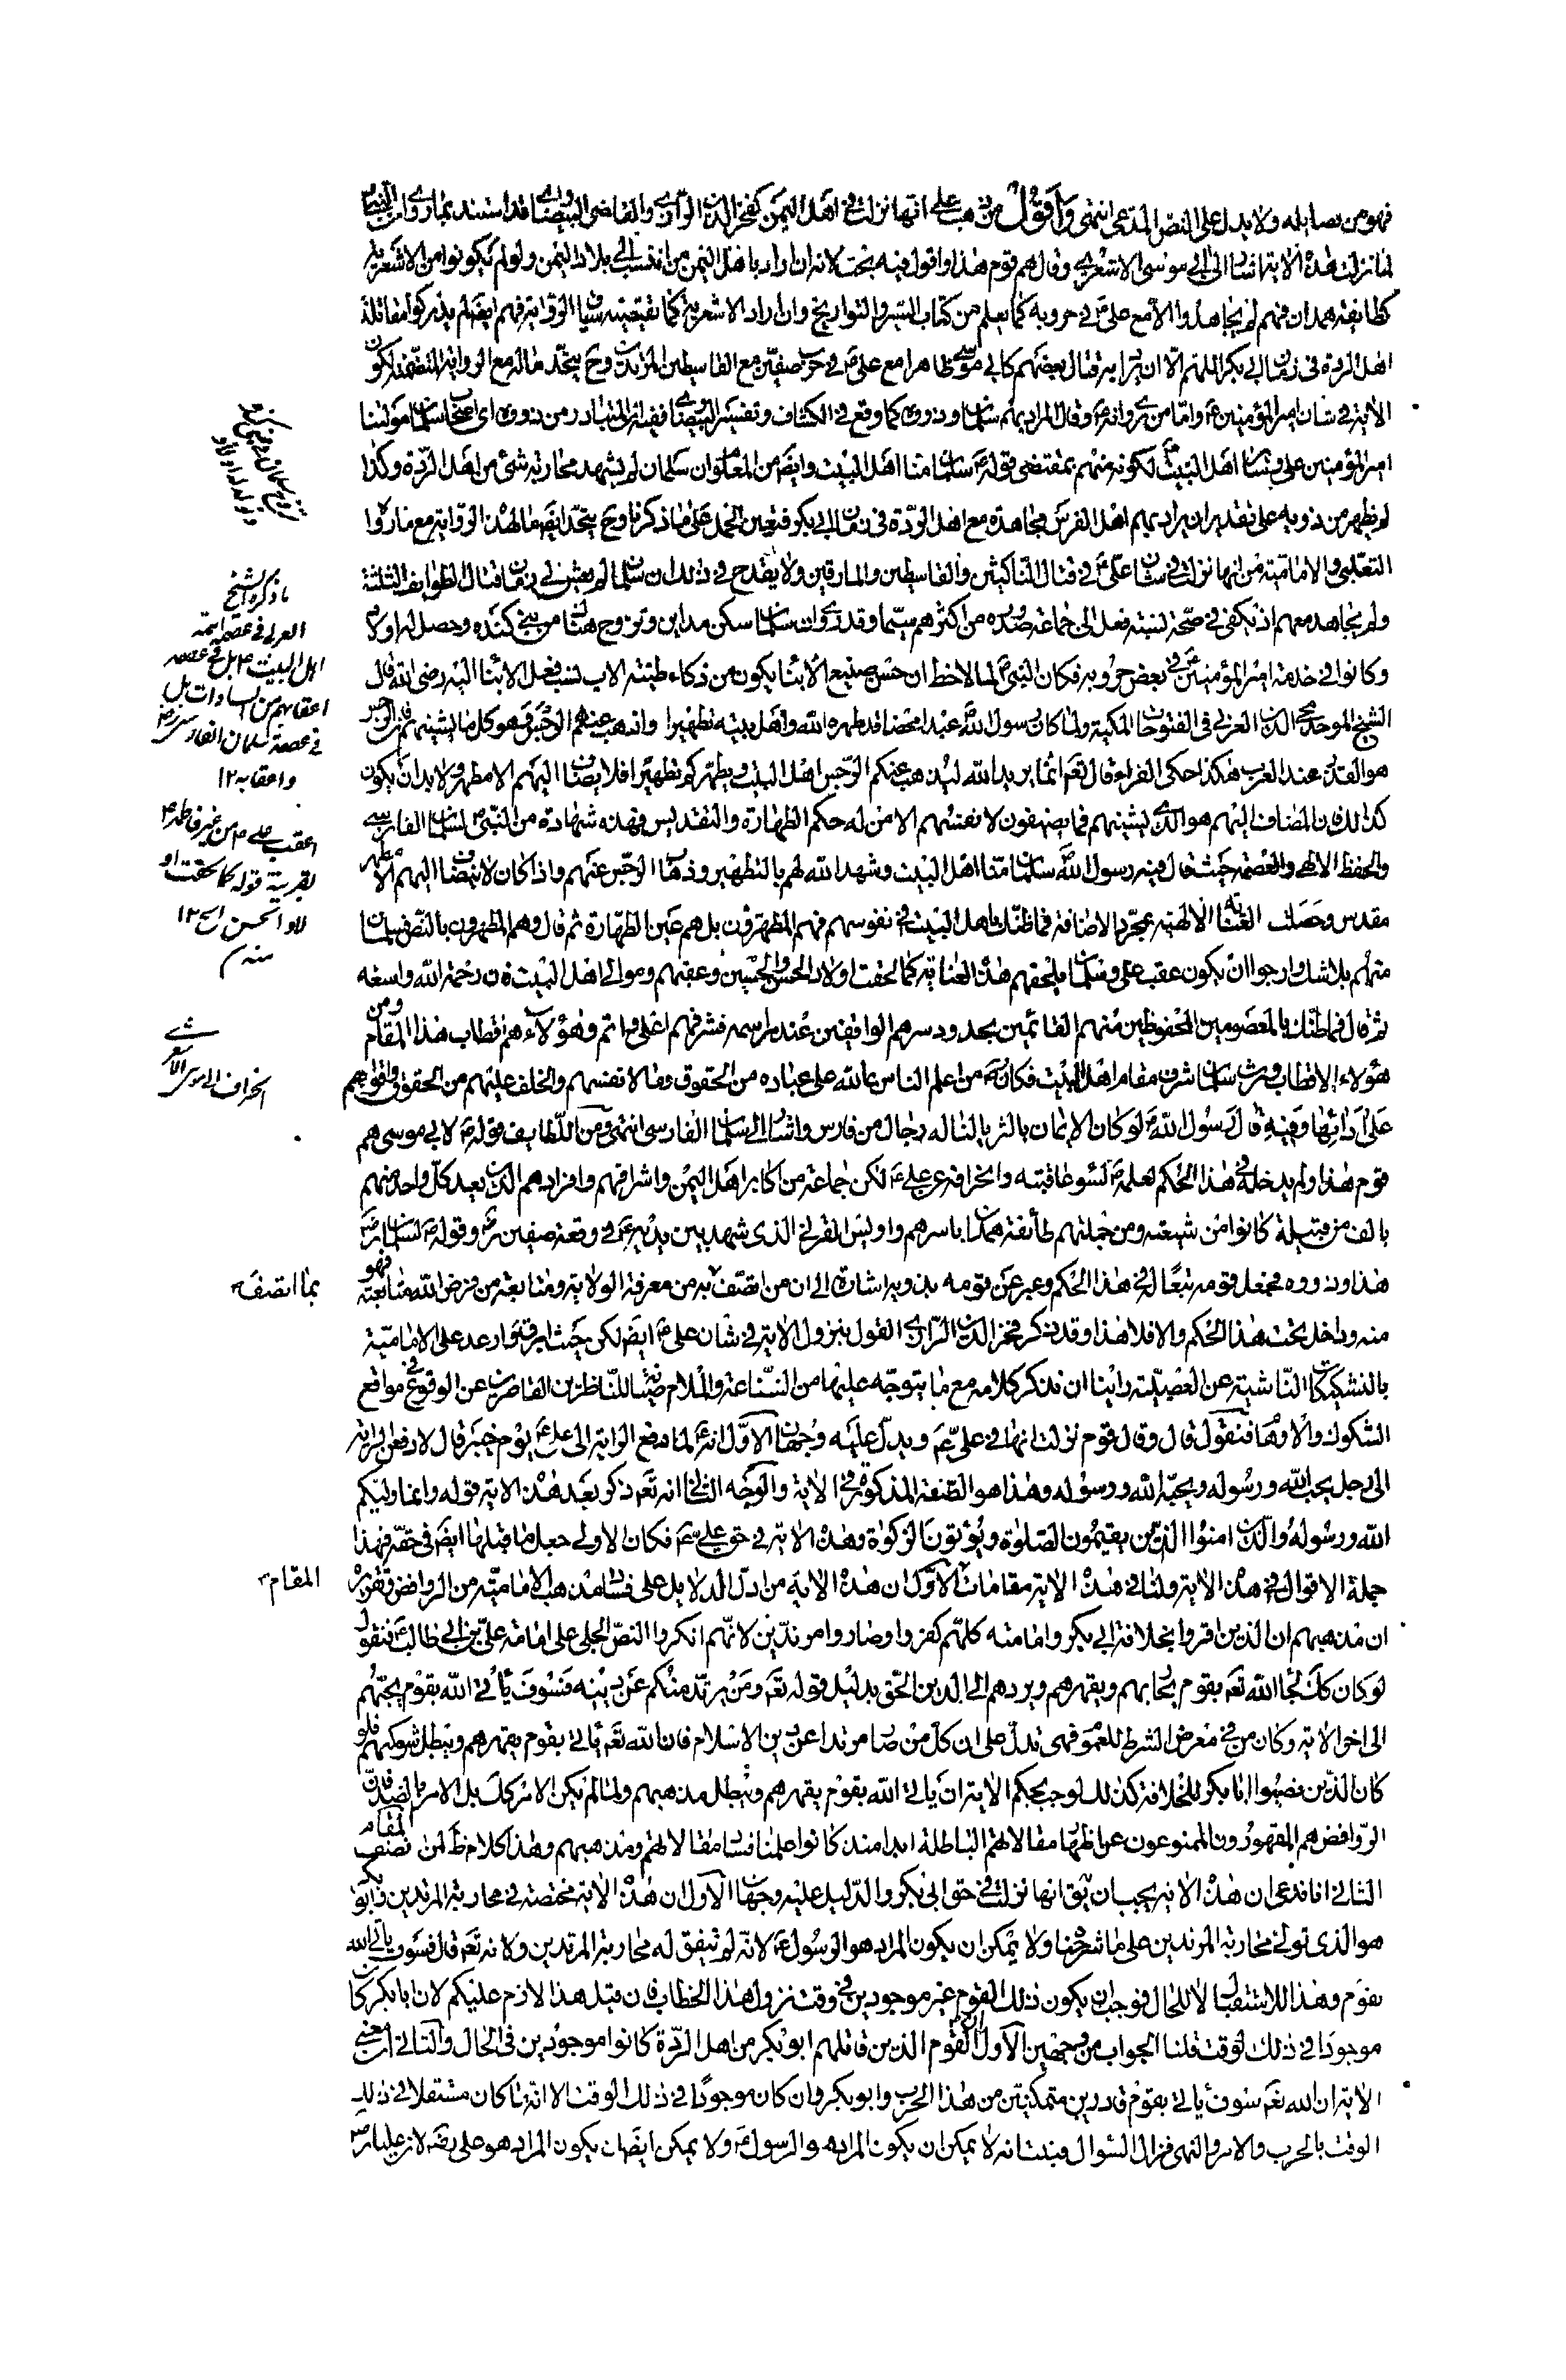 فهو من بصايله ولا يدل على النص المدعى انتهى وأقول من ذهب على انها نزلت في اهل اليمن كفخر الدين الرازي والقاضي البيضاوي قد استند بما روي ان النبي ص
لما نزلت هذه الاية اشار الى ابي موسى الاشعري وقال هم قوم هذا واقول فيه بحث لانه ان اراد باهل اليمن من انتسب الى بلاد اليمن ولو لم يكونوا من الاشعرية
كطايفة همدان فهم لم يجاهدوا الا مع علي ع في حروبه كما يعلم من كتاب السير والتواريخ وان اراد الاشعرية كما يقتضيه سياق الرواية فهم ايضا لم يدركوا مقاتلة
اهل الردة في زمان ابي بكر اللهم الا ان يراد به قتال بعضهم كابي موسى ظاهرا مع علي ع في حرب صفين مع القاسطين المرتدين وح يتحد ماله مع الرواية المتضمنة لكون
الاية في شان امير المؤمنين ع واما من روى انه ع قال المراد بهم سلمان وذووه كما وقع في الكشاف وتفسير البيضاوي ففيه ان المتبادر من ذووه اى اصحاب سلمان مولينا
امير المؤمنين علي وسائر اهل البيت لكونه منهم بمقتضى قوله ص سلمان منا اهل البيت وايضا من المعلوم ان سلمان لم يشهد محاربة شئ من اهل الردة وكذا
لم يظهر من ذويه على تقدير ان يراد بهم اهل الفرس مجاهدة مع اهل الردة في زمان ابي بكر فتعين الحمل على ما ذكرنا وح يتحد ايضا مال هذه الرواية مع ما رواه
الثعلبي والامامية من انها نزلت في شان علي ع في قتال الناكثين والقاسطين والمارقين ولا يقدح في ذلك ان سلمان لم يعش الى زمان قتال الطوايف الثلثة
ولم يجاهد معهم اذ يكفي في صحة نسبة فعل الى جماعة صدوره من اكثرهم سيما وقد روى ان سلمان سكن مداين وتزوج هناك من بني كنده وحصل له اولاد
وكانوا في خدمة امير المؤمنين ع في بعض حروبه فكان النبي ص لما لاحظ ان حسن صنيع الابناء يكون من ذكاء طينة الاب نسب فعل الابناء اليه رضى الله قال
الشيخ الموحد محيي الدين العربي في الفتوحات المكية ولما كان رسول الله ص عبدا محضا قد طهره الله واهل بيته تطهيرا واذهب عنهم الرجس وهو كل ما يشينهم فان الرجس
هو القذر عند العرب هكذا حكى الفراء قال تعالى انما يريد الله ليذهب عنكم الرجس اهل البيت ويطهركم تطهيرا فلا يضاف اليهم الا مطهر ولا بد ان يكون
كذلك فان المضاف اليهم هو الذي يشبههم فما يضيفون لانفسهم الا من له حكم الطهارة والتقديس فهذه شهادة من النبي ص لسلمان الفارسي
والحفظ الالهي والعصمة حيث قال فيه رسول الله ص سلمان منا اهل البيت وشهد الله لهم بالتطهير وذهاب الرجس عنهم واذا كان لا ينضاف اليهم الا مطهر
مقدس وحصلت العناية الالهية بمجرد الاضافة فما ظنك باهل البيت في نفوسهم فهم المطهرون بل هم عين الطهارة ثم قال وهم المطهرون بالنص فسلمان
منهم بلا شك وارجو ان يكون عقب علي وسلمان يلحقهم هذه العناية كما لحقت اولاد الحسن والحسين وعقبهم وموالي اهل البيت فان رحمة الله واسعة
ثم قال فما ظنك بالمعصومين المحفوظين منهم القائمين بحدود سيدهم الواقفين عند مراسمه فشرفهم اعلى واتم وهؤلاء هم اقطاب هذا المقام ومن
هؤلاء الاقطاب ورث سلمان شرف مقام اهل البيت فكان رض من اعلم الناس بما لله على عباده من الحقوق وما لانفسهم والخلق عليهم من الحقوق واقواهم
على ادائها وفيه قال رسول الله ص لو كان الايمان بالثريا لناله رجال من فارس واشار الى سلمان الفارسي انتهى ومن اللطايف قوله ص لابي موسى هم
قوم هذا ولم يدخله في هذا الحكم لعلمه ص لسوء عاقبته وانحرافه عن علي ع لكن جماعة من اكابر اهل اليمن واشرافهم وافرادهم الذين يعد كل واحد منهم
بالف من قبيلة كانوا من شيعته ومن جملتهم طائفة همدان باسرهم واويس القرني الذى شهد بين يديه ع في وقعة صفين رض وقوله ص لسلمان رض
هذا وذووه فجعل قومه تبعا له في هذا الحكم وعبر عن قومه بذويه اشارة الى ان من اتصف به من معرفة الولاية ومتابعة من فرض الله متابعته فهو
منه وداخل تحت هذا الحكم والا فلا هذا وقد ذكر فخر الدين الرازي القول بنزول الاية في شان علي ع ايضا لكن حيث ابرق وارعد على الامامية
بالتشكيكات الناشية عن العصبية راينا ان نذكر كلامه مع ما يتوجه عليها من الشناعة والملام صيانة للناظرين القاصرين عن الوقوع في مواقع
الشكوك والاوهام فنقول قال وقال قوم نزلت انها في علي ع ويدل عليه وجهان الاول انه ع لما دفع الراية الى علي ع يوم خيبر قال لادفعن الراية
الى رجل يحب الله ورسوله ويحبه الله ورسوله وهذا هو الصفة المذكورة في الاية والوجه الثاني انه تعالى ذكر بعد هذه الاية قوله وانما وليكم
الله ورسوله والذين امنوا الذين يقيمون الصلوة ويؤتون الزكوة وهذه الاية في حق علي ع فكان الاولى جعل ما قبلها ايضا في حقه فهذا
جملة الاقوال في هذه الاية ولنا في هذه الاية مقامات الاول ان هذه الاية من ادل الدلايل على فساد مذهب الامامية من الروافض وتقريره
ان مذهبهم ان الذين اقروا بخلافة ابي بكر وامامته كلهم كفروا وصاروا مرتدين لانهم انكروا النص الجلي على امامة علي بن ابي طالب ع فنقول
لو كان كذلك لجاء الله تعالى بقوم يحاربهم ويقهرهم ويردهم الى الدين الحق بدليل قوله تعالى ومن يرتد منكم عن دينه فسوف يأتي الله بقوم يحبهم
الى اخر الاية وكان من في معرض الشرط للعموم فهى تدل على ان كل من صار مرتدا عن دين الاسلام فان الله تعالى يأتي بقوم يقهرهم ويبطل شوكتهم فلو
كان الذين نصبوا ابا بكر للخلافة كذلك لوجب بحكم الاية ان ياتي الله بقوم يقهرهم ويبطل مذهبهم ولما لم يكن الامر كذلك بل الامر بالضد فان
الروافض هم المقهورون الممنوعون عن اظهار مقالاتهم الباطلة ابدا منذ كانوا علمنا فساد مقالاتهم ومذهبهم وهذا كلام ظ لمن انصف المقام
الثاني انا ندعى ان هذه الاية يجب ان يق انها نزلت في حق ابى بكر والدليل عليه وجهان الاول ان هذه الاية مختصة في محاربة المرتدين وابو بكر
هو الذى تولى محاربة المرتدين على ما شرحنا ولا يمكن ان يكون المراد هو الرسول ع لانه لم يتفق له محاربة المرتدين ولانه تعالى قال فسوف ياتي الله
بقوم وهذا للاستقبال لا للحال فوجب ان يكون ذلك القوم غير موجودين في وقت نزول هذا الخطاب فان قيل هذا لازم عليكم لان ابا بكر كان
موجودا في ذلك لوقت قلنا الجواب من وجهين الاول ان القوم الذين قاتلهم ابو بكر من اهل الردة كانوا موجودين في الحال والثاني ان معنى
الاية ان الله تعالى سوف يأتي بقوم قادرين متمكنين من هذا الحرب وابو بكر وان كان موجودا في ذلك الوقت الا انه ما كان مستقلا في ذلك
الوقت بالحرب والامر والنهى فزال السؤال فثبت انه لا يمكن ان يكون المراد هو الرسول ع ولا يمكن ايضا ان يكون المراد هو علي رضى لان عليا رض
ما ذكره الشيخ
العربي في عصمة ائمة
اهل البيت ع بل في عصمة
اعقابهم من السادات بل
في عصمة سلمان الفارسي رض
واعقابه ١٢
عقب علي ع من غير فاطمة ع
بقرينة قوله كما لحقت او
لاد الحسن الخ ١٢
منه ره
انحراف ابى موسى الاشعري
بما اتصف
المقام